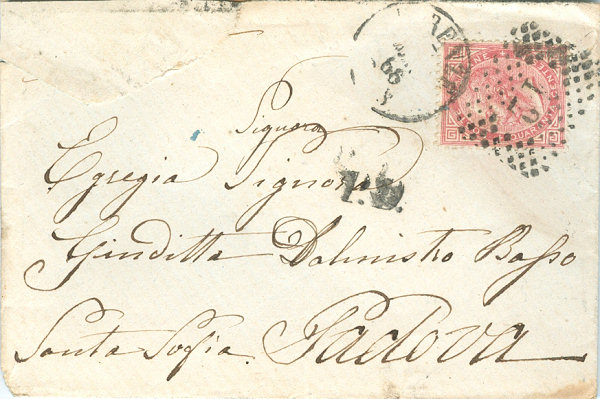 66
QUAR
P.D.
Signora
Egregia Signora
Giuditta Dalmistro Basso
Santa Sofia. Padova